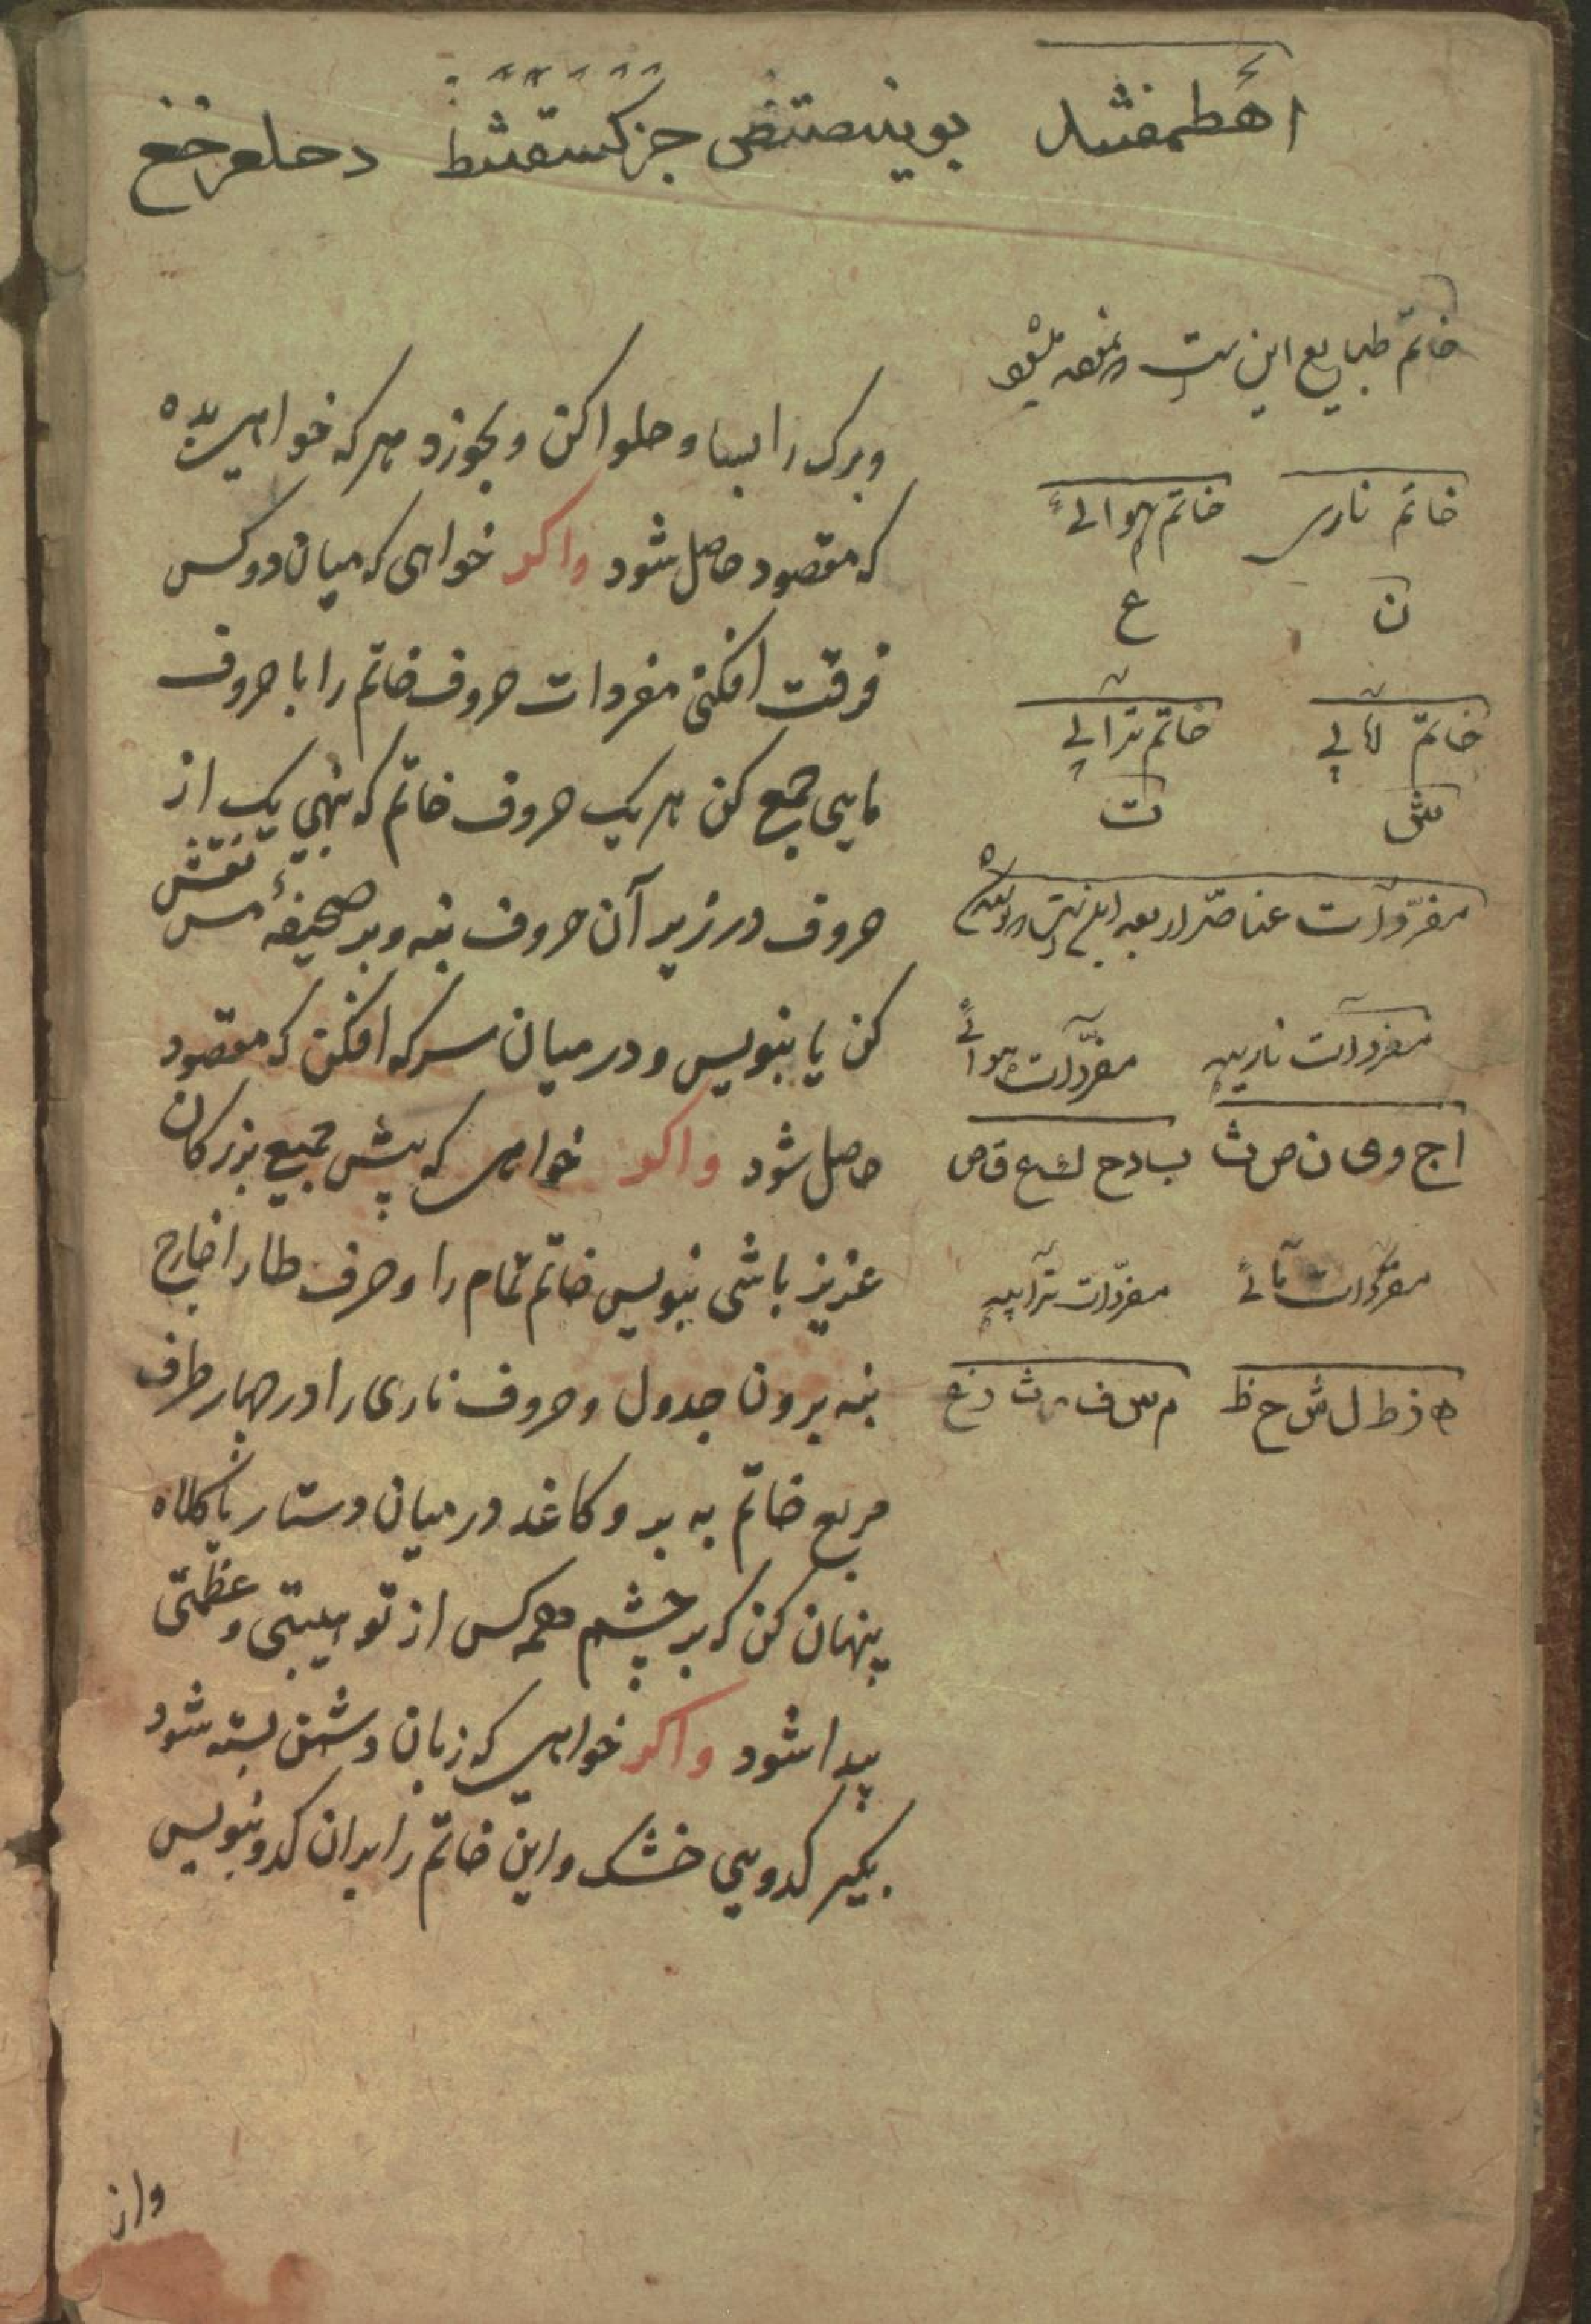 اهطمفشذ بوينصتض جزكسقثظ دحلعرخغ
خاتم طبايع اين ست
خاتم نارى خاتم هوائے
ن ع
خاتم مائے ترابے
ش ت
مفردات عناصر اربعه اين ست
مفردات ناريه مفردات هوائے
ا ج و ى ن ص ث ب د ح ك ع ق ض
مفردات مائے مفردات ترابيه
ه ز ط ل ش خ ظ م س ف ت ذ غ
و برک را بسا و حلوا کن و بخور و هر که خواهی بده
که مقصود حاصل شود واکر خواهی که میان دو کس
فرقت افکنی مفردات حروف خاتم را با حروف
مایی جمع کن هر یک حروف خاتم که بنهی یک از
حروف در زیر آن حروف بنه و بر صحیفهٔ مس نقش
کن یا بنویس و در میان سرکه افکن که مقصود
حاصل شود واکر خواهی که پیش جمیع بزرکان
عزیز باشی بنویس خاتم تمام را و حرف طا را خارج
بنه برون جدول و حروف ناری را در چهار طرف
مربع خاتم به بر و کاغد در میان دستار یا کلاه
پنهان کن که بر چشم همه کس از تو هیبتی و عظمتی
پیدا شود واکر خواهی که زبان دشمن بسته شود
بکیر کدویی خشک و این خاتم را بدان کدو بنویس
واز